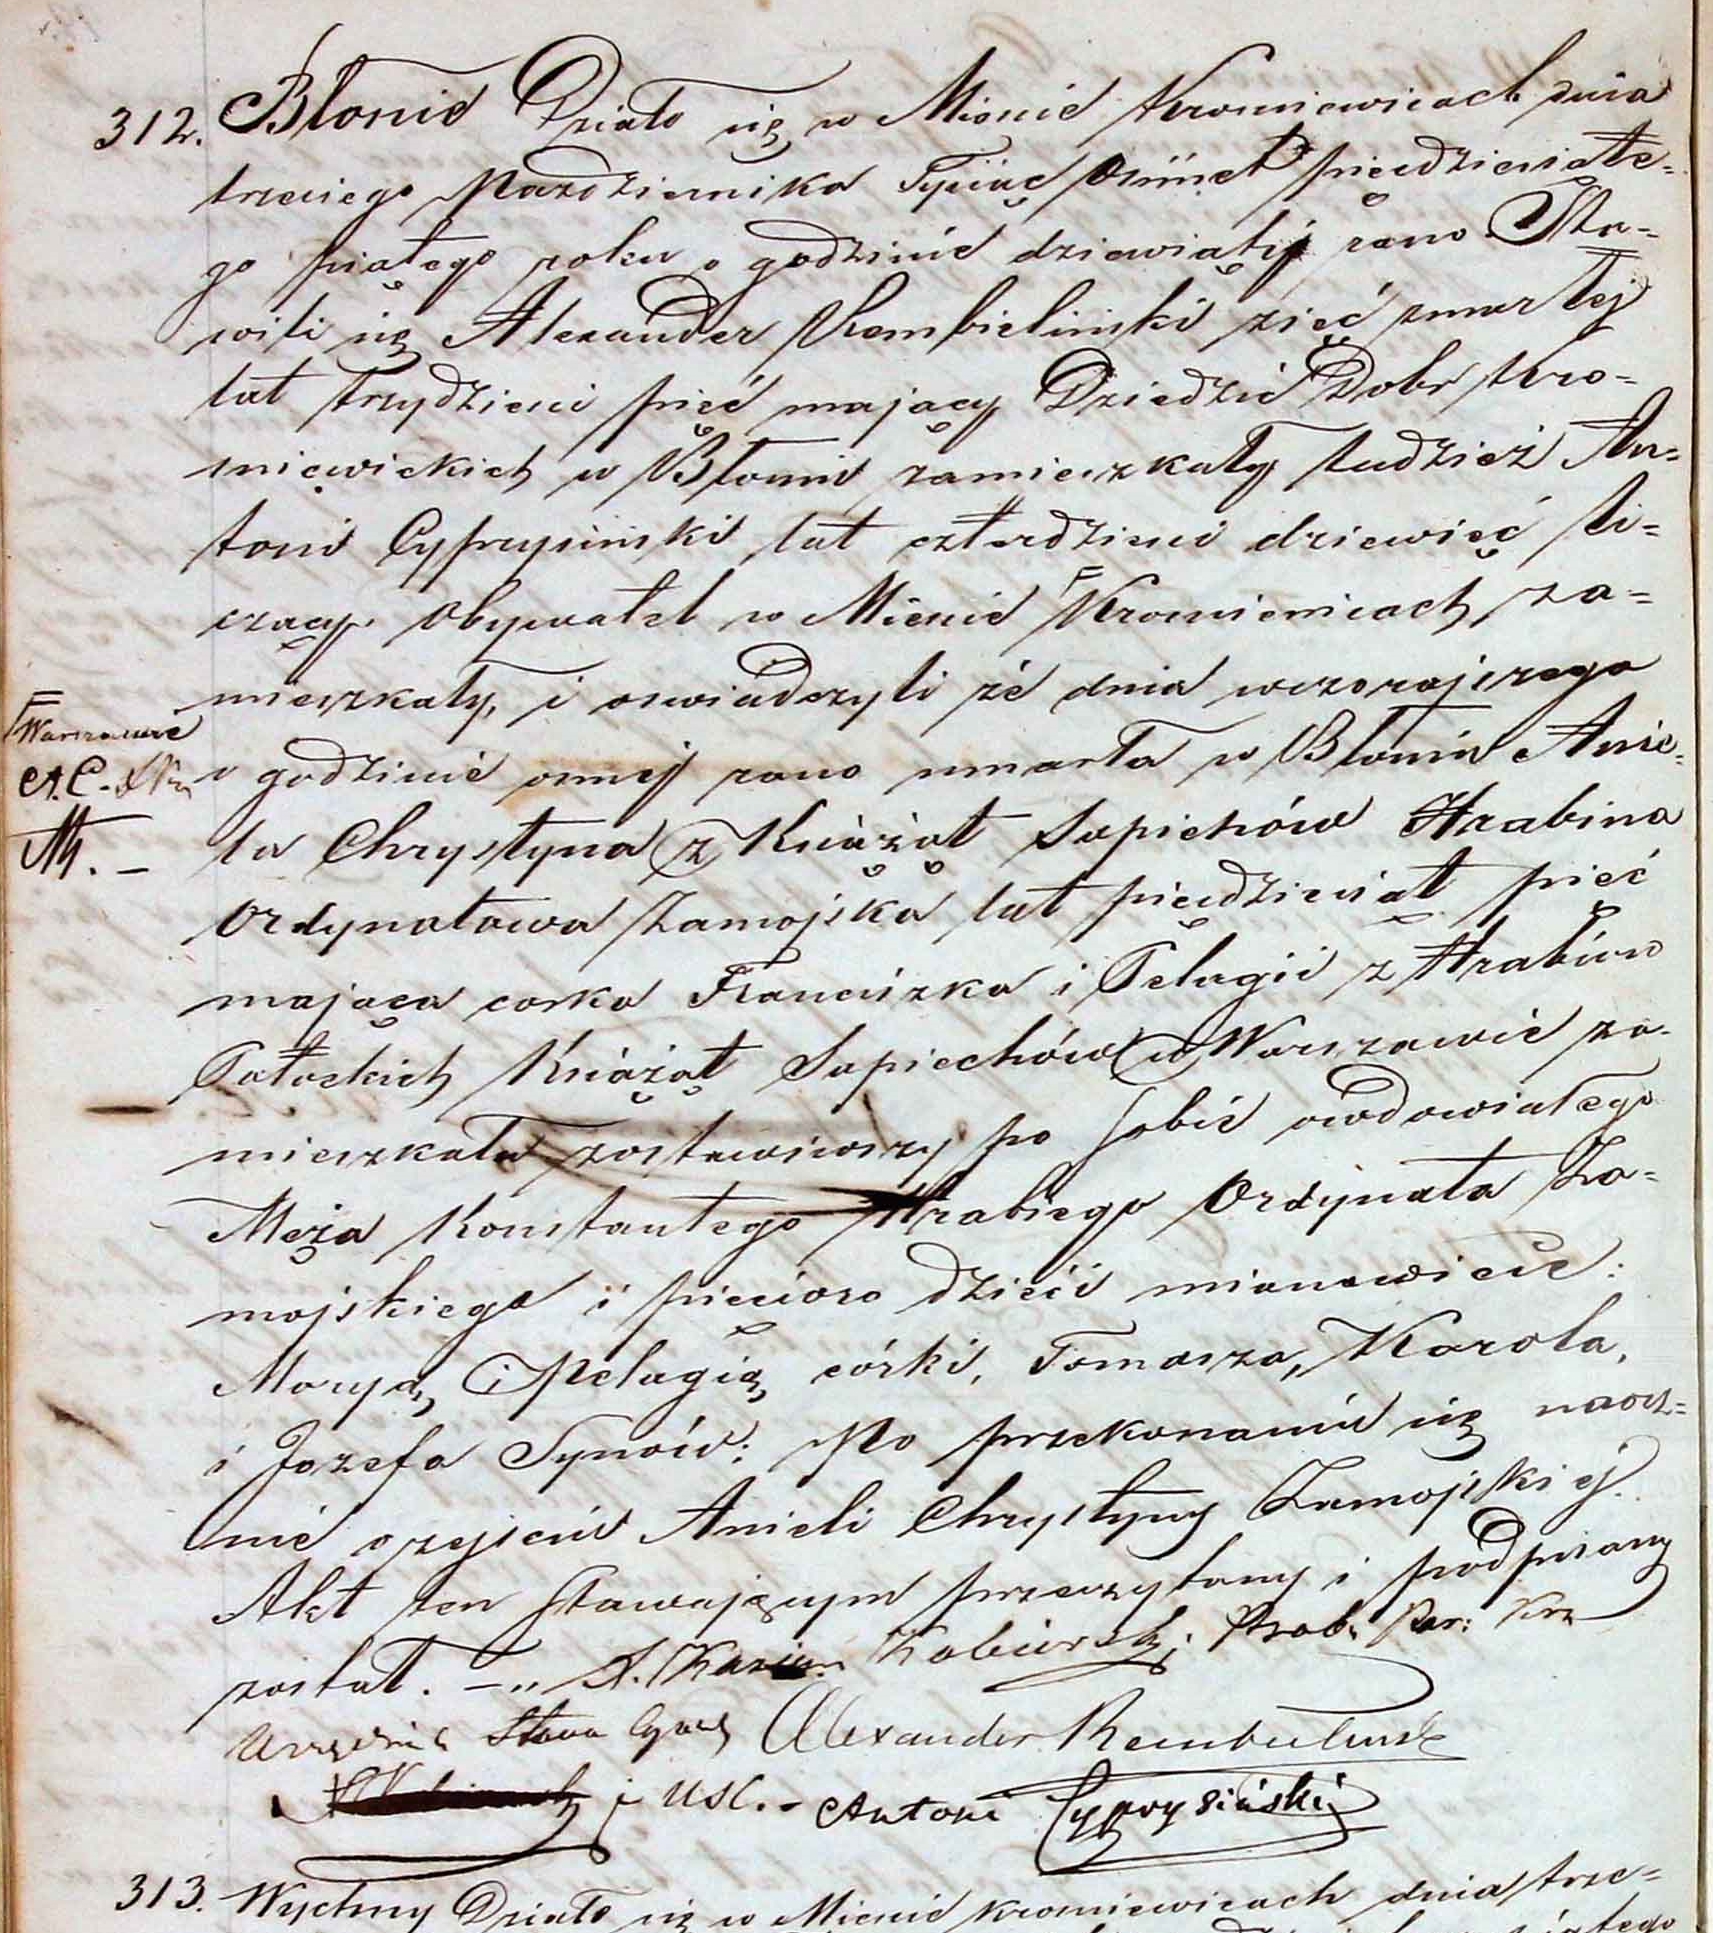 312. Błonie Działo się w Mieście Krośniewicach dnia
trzeciego Pazdziernika Tysiąc Ośmset pięcdziesiąte-
go piątego roku o godzinie dziewiątéj rano Sta-
wili się Alexander Rembieliński zięć zmarłej
lat trzydzieści pięć mający Dziedzic Dobr Kro-
sniewickich w Błoniu zamieszkały tudzież An-
toni Cyprysiński lat czterdzieści dziewięć li-
czący. Obywatel w Mieście Krosniewicach, za-
mieszkały, i oswiadczyli że dnia wczorajszego
Warszawie
A. C.
o godzinie osmej rano umarła w Błoniu Anie-
la Chrystyna z Książąt Sapiehów Hrabina
Ordynatowa Zamojska lat pięcdziesiąt pięć
mająca corka Franciszka i Pelagii z Hrabiow
Potockich Książąt Sapiechów w Warszawie za-
mieszkała zostawiwszy po sobie owdowiałego
Męża Konstantego Hrabiego Ordynata Za-
mojskiego i pięcioro dzieci mianowicie:
Maryą, i Pelagią, córki, Tomasza, Karola,
i Jozefa Synów: Po przekonaniu się naocz-
nie o zejściu Anieli Chrystyny Zamojskiej.
Akt ten stawającym przeczytany i podpisany
został. — X. Prob. Par: Kro
Urzędnik Stanu Cywil Alexander Rembielinski
i USC. - Antoni Cyprysiński
313. Wychny Działo się w Mieście Krosniewicach dnia trze-